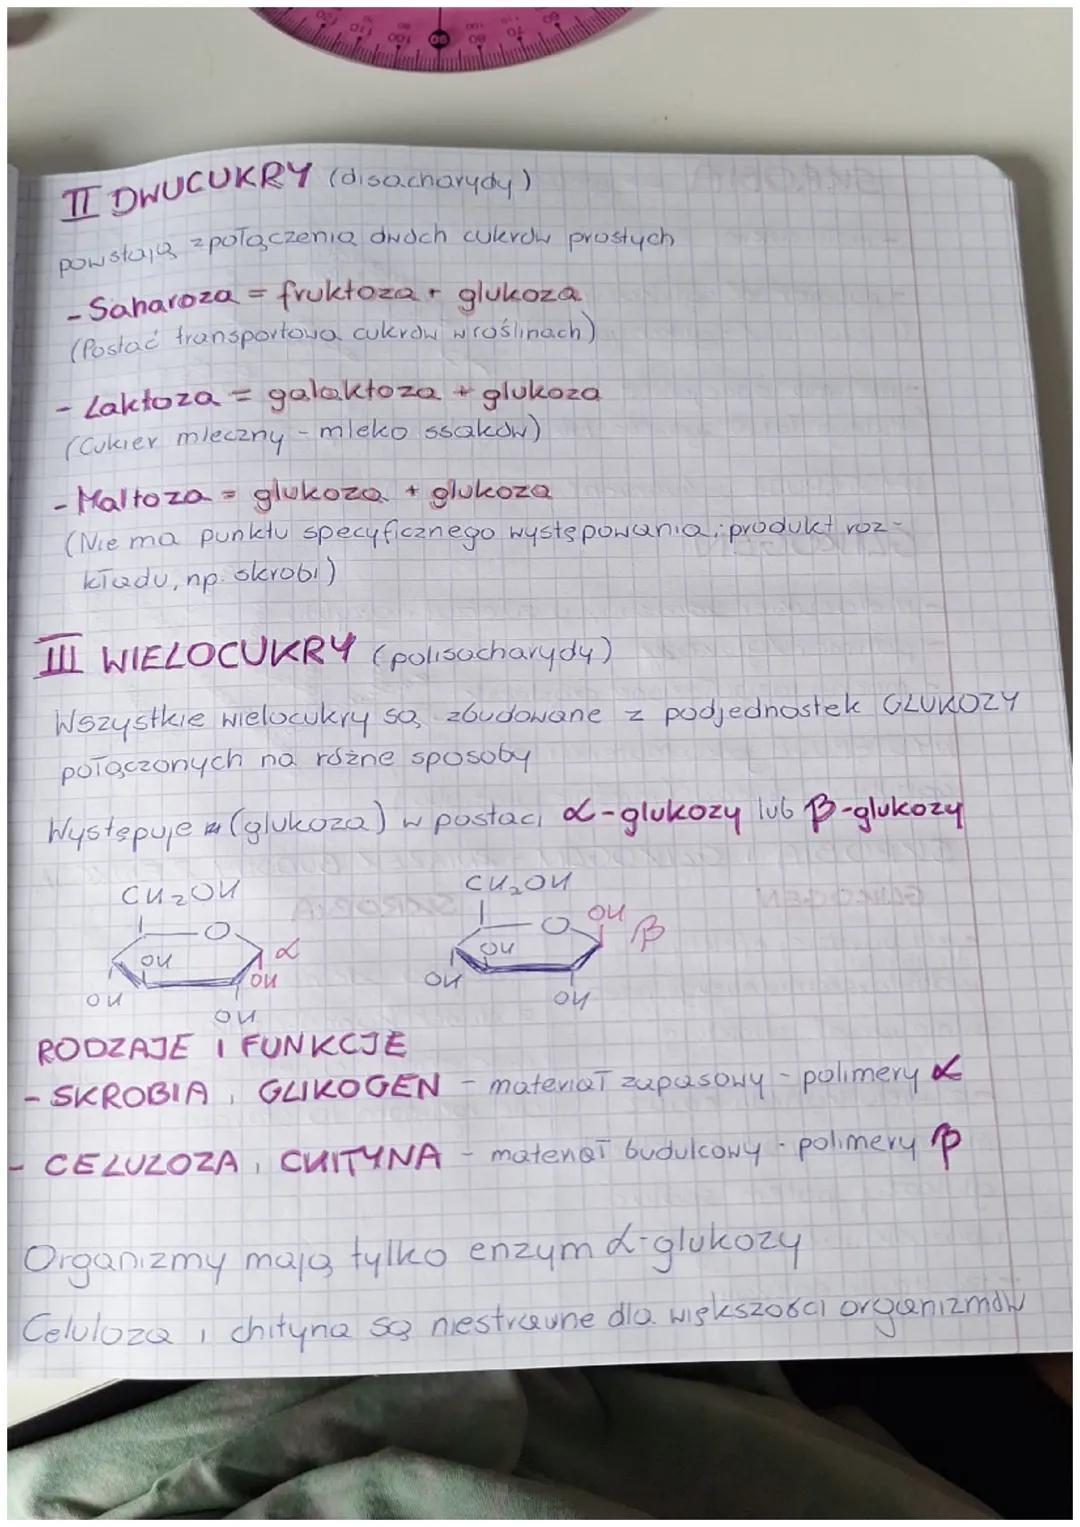 II DWUCUKRY (disacharydy)
powstają z połączenia dwóch cukrów prostych
- Saharoza = fruktoza + glukoza
(Postać transportowa cukrów w roślinach)
- Laktoza = galaktoza + glukoza
(Cukier mleczny - mleko ssaków)
- Maltoza = glukoza + glukoza
(Nie ma punktu specyficznego występowania, produkt roz-
kładu, np. skrobi)
III WIELOCUKRY (polisacharydy)
Wszystkie wielocukry są zbudowane z podjednostek GLUKOZY
połączonych na różne sposoby
Występuje (glukoza) w postaci α-glukozy lub β-glukozy
CH₂OH CH₂OH
O O OH β
OH α OH
OH OH
OH OH OH
RODZAJE I FUNKCJE
- SKROBIA, GLIKOGEN - materiał zapasowy - polimery α
- CELULOZA, CHITYNA - materiał budulcowy - polimery β
Organizmy mają tylko enzym α-glukozy
Celuloza i chityna są niestrawne dla większości organizmów